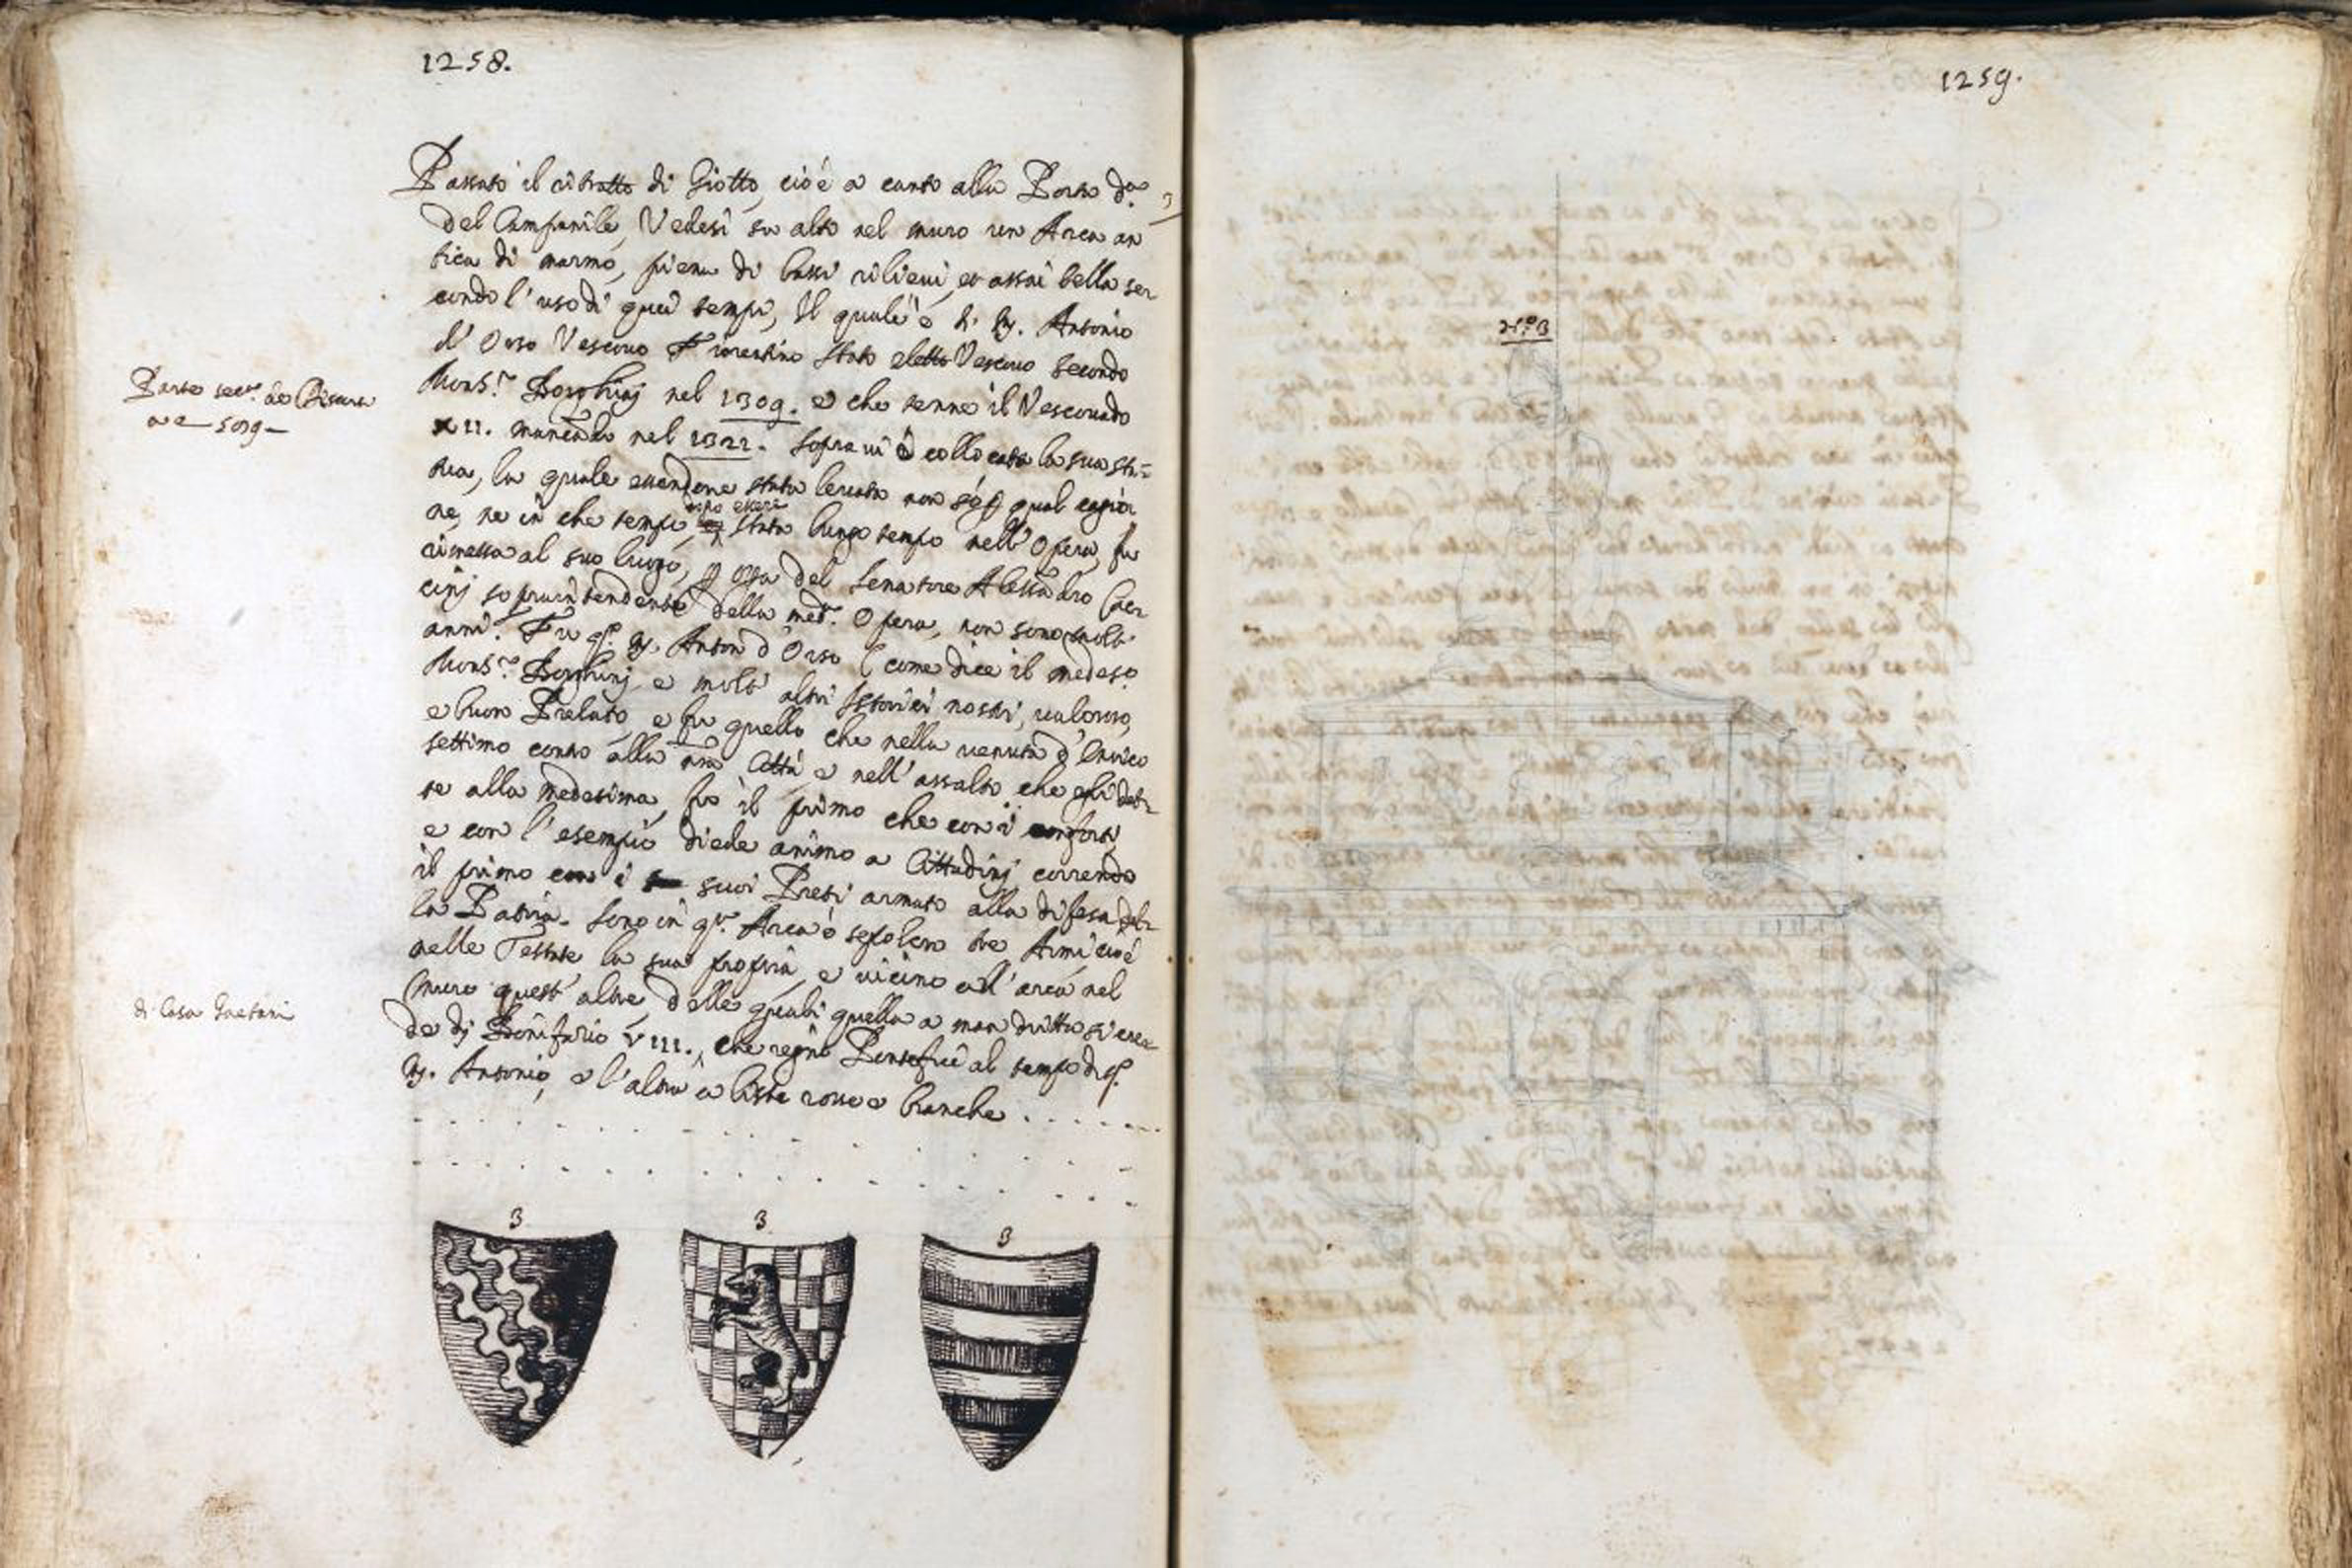 1258.
Passato il ritratto di Giotto, cioè a canto alla Porta d.ª
del Campanile, Vedesi su alto nel muro un Arca an
tica di marmo, piena di bassi rilievi, et assai bella se
condo l'uso di quei tempi, Il quale è di M. Antonio
d'Orso Vescovo Fiorentino stato eletto Vescovo secondo
Mons.r Borghinj nel 1309. e che tenne il Vescovado
Parte sec.ª de
a c 509
XII. mancando nel 1322. sopra vi è collocata la sua sta=
tua, la quale essendone stata levata non so p qual cagio
ne, ne in che tempo, dopo essere stata lungo tempo nell'Opera, fu
rimessa al suo luogo, p opa del Senatore Alessandro Cac
cinj sopraintendente della med.ª Opera, non sono molti
anni. Fu q.º M. Anton d'Orso (come dice il medes.º
Mons.r Borghinj e molti altri Istorici nostri, valoroso,
e buon Prelato, e fu quello che nella venuta d'Enrico
settimo contro alla nra Città e nell'assalto che egli det
te alla medesima, fu il primo che con i conforti
e con l'esempio diede animo a Cittadinj correndo
il primo con i suoi Preti armato alla difesa del
la Patria. Sono in q.ta Arca o sepolcro tre Armi cioè
nelle Testate la sua propria, e vicino all'arca nel
muro quest'altre, delle quali quella a man dritta si cre
di Casa Gaetani
de di Bonifazio VIII., che regnò Pontefice al tempo di q.º
M. Antonio, e l'altra a liste rosse e bianche . . . . .
3
3
3
1259.
N.º 3